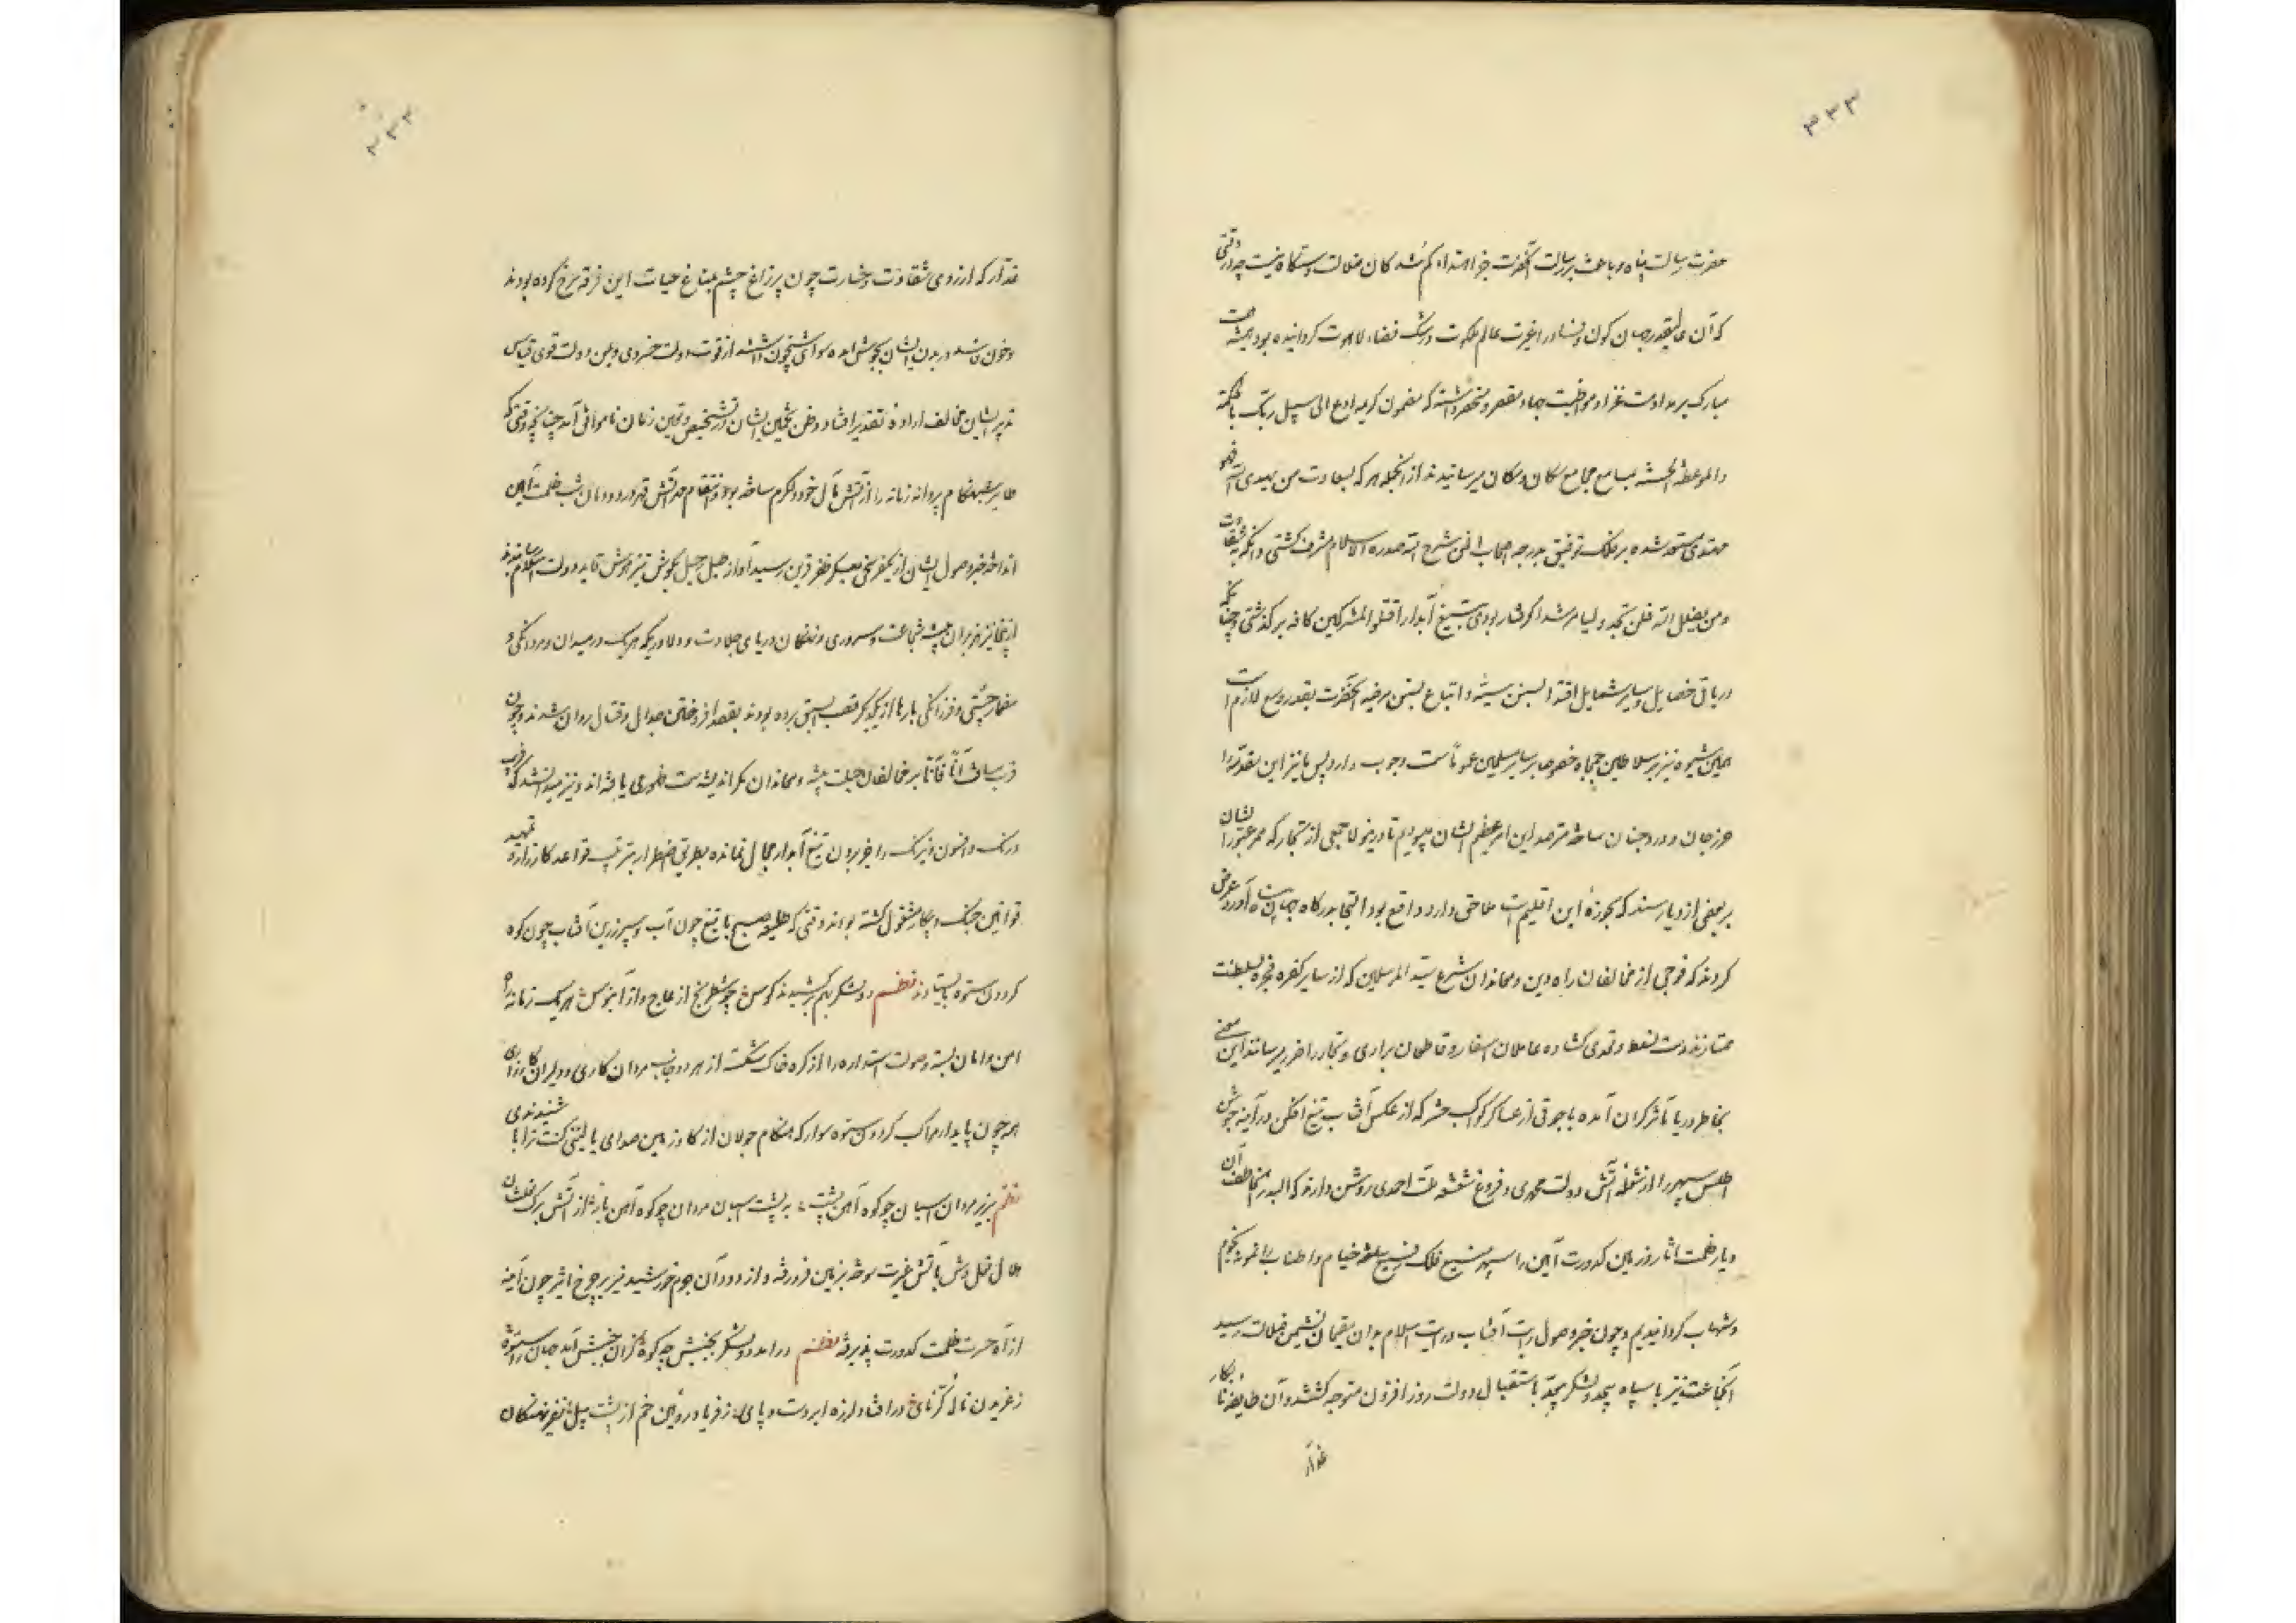 ۳۳۳
حضرت رسالت پناه و باعث بر رسالت آنحضرت جز اهتداء گم شدگان ضلالت دستگاه نیست چه در وقتی
که آن عالیقدر جهان کون و فساد را غیرت عالم ملکوت و رشک فضاء لاهوت گردانیده بود همیشه همت
مبارک بر مداومت غزا و مواظبت جهاد مقصر و منحصر داشته که مضمون کریمه ادع الی سبیل ربک بالحکمة
والموعظة الحسنة بمسامع مجامع سکان و مکان میرسانیدند از آنجمله هر که بسعادت من یهدی الله فهو
مهتدی مستعد شده بر فلک توفیق بدرجه اصحاب افمن شرح الله صدره للاسلام مشرف گشتی و آنکه بشقاوت
ومن یضلل الله فلن تجد ولیا مرشدا گرفتار بودی بتیغ آبدار اقتلوا المشرکین کافه برگذشتی و چنانکه
در باقی خصایل و سایر شمایل اقتدا بسنن سنیه و اتباع بسنن مرضیه آنحضرت بقدر وسع لازم است
همین شیوه نیز بر سلاطین جمجاه خصوصا بر سایر مسلمین عموماً سمت وجوب دارد پس ما نیز این مقدمه را
حرز جان و ورد جنان ساخته مترصد این امر عظیم الشان میبودیم تا درینولا جمعی از تجار که ممر عبور ایشان
بر بعضی از دیار سند که بحوزه این اقلیم است ملاحق دارد واقع بود التجا بدرگاه جهان پناه آورده عرض
کردند که فوجی از مخالفان راه دین و معاندان شرع سید المرسلین که از سایر کفره فجره بسلطنت
ممتازند دست تسلط و تعدی گشاده عاملان اسفار و قاطعان براری و تجار را ضرر میرسانند این معنی
بخاطر دریا مآثر گران آمده با جوقی از عساکر کواکب حشر که از عکس آفتاب تیغ افکن در آینه جوشن
اطلس سپهر را از شعله آتش دولت محمدی و فروغ شعشعه ملت احمدی روشن دارند که البدر
دیار ظلمت آثار روز زمین کدورت آیین را سپهر فلک خیام و اطناب را نمونه نجوم
و شهاب گردانیدیم و چون خبر وصول رایت آفتاب درایت اسلام بدان مقیمان نشیمن ضلالت رسید
آنجماعت نیز با سپاه بیحد و لشکر بیعدّ باستقبال دولت روز افزون متوجه گشتند و آن طایفه نابکار
غدار
۳۳۴
غدار که از روی شقاوت و خسارت چون پر زاغ چشم بباغ حیات این فرقه سرخ کرده بودند
و خون فاسد در بدن ایشان بجوش آمده سودای شبیخون داشتند از قوت دولت خسروی و یمن دولت قوی قیاس
تدبیر ایشان مخالف اراده تقدیر افتاد و ظن تخمین ایشان در تشخیص و تعیین زمان ناموافق آمد چنانچه وقتی که
طایر شبهنگام پروانه زمانه را از آتش بال خود دلگرم ساخته بود و انتقام آتش قهر در دودمان شب ظلمت آیین
انداخته خبر وصول ایشان از یکفرسخی بمعسکر ظفر قرین رسید آواز طبل رحیل بگوش تیز هوش قاید دولت اسلام رسانیدند
از اینجا نیز هزبران بیشه شجاعت و سروری و نهنگان دریای جلادت و دلاوری که هر یک در میدان مردانگی و
مضمار چستی و فرزانگی بارها از یکدیگر قصب السبق برده بودند بقصد افروختن جدال و قتال روان شدند و چون
قرب مسافت آناً فآناً بر مخالفان حیلت پیشه و معاندان مکر اندیشه سمت ظهوری یافته اند و نیز میدانستند که فریب
و رنگ و افسون و نیرنگ را جز بردن تیغ آبدار مجال نمانده بطریق اضطرار بترتیب قواعد کارزار و تمهید
قوانین جنگ و پیکار مشغول گشته بودند وقتی که طلیعه صبح با تیغ چون آب و سپر زرین آفتاب چون کوه
گردون ستوه بایستادند نظم دو لشکر بهم برکشیدند کوس چو شطرنج از عاج و از آبنوس هر یک زمانه را
امن و امان بسته و صولت استواره را از کره خاک شکست از هر دو جانب مردان کاری و دلیران کارزاری
همه چون پایدار مراکب گردون ستوه سوار که هنگام جولان از گاو زمین صدای یا لیتنی کنت ترابا شنیدندی
نظم بزیر مردان اسبان چو کوه آهن پشت به پشت اسبان مردان چو کوه آهن
هلال نعل وش بآتش غیرت سوخته بزمین فرو رفته و از دود آن جرم خورشید نیز بر چرخ اثیر چون آینه
از آه حسرت ظلمت کدورت پذیرفته نظم در آمد دو لشکر بجنبش چو کوه کزان جنبش آمد جهان را ستوه
ز غریدن نای کرنای در افتاد لرزه ابر دست و پای ز فریاد روئین خم از پشت پیل نفیر نهنگان